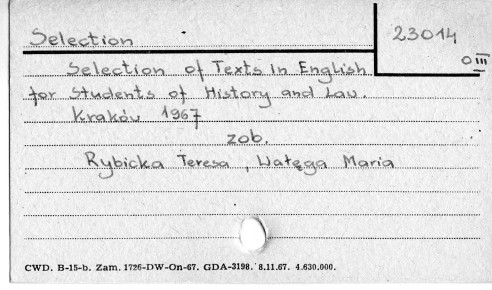 Selection
23014
O III
Selection of Texts in English
for Students of History and Law.
Kraków 1967
zob.
Rybicka Teresa, Wałęga Maria
CWD. B-15-b. Zam. 1726-DW-On-67. GDA-3198. 8.11.67. 4.630.000.